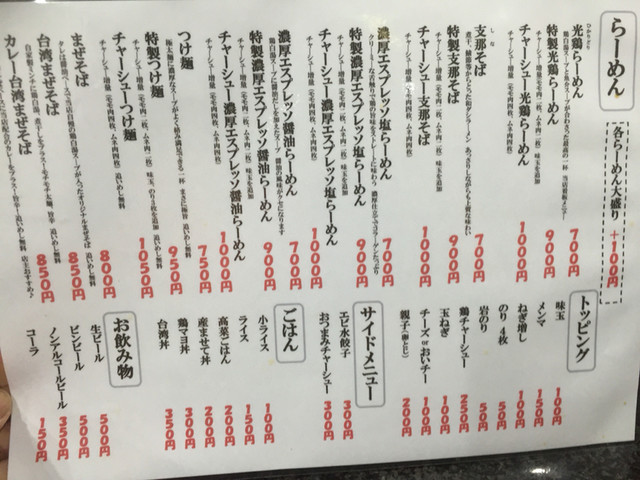 らーめん
各らーめん大盛り +100円
光鶏らーめん 700円
ひかりどり
特製光鶏らーめん 900円
チャーシュー増量（モモ肉二枚、ムネ肉二枚）味玉を追加
チャーシュー光鶏らーめん 1000円
チャーシュー増量（モモ肉四枚、ムネ肉四枚）
支那そば 700円
しな
特製支那そば 900円
チャーシュー増量（モモ肉二枚、ムネ肉二枚）味玉を追加
チャーシュー支那そば 1000円
チャーシュー増量（モモ肉四枚、ムネ肉四枚）
濃厚エスプレッソ塩らーめん 700円
特製濃厚エスプレッソ塩らーめん 900円
チャーシュー増量（モモ肉二枚、ムネ肉二枚）味玉を追加
チャーシュー濃厚エスプレッソ塩らーめん 1000円
チャーシュー増量（モモ肉四枚、ムネ肉四枚）
濃厚エスプレッソ醤油らーめん 700円
特製濃厚エスプレッソ醤油らーめん 900円
チャーシュー増量（モモ肉二枚、ムネ肉二枚）味玉を追加
チャーシュー濃厚エスプレッソ醤油らーめん 1000円
チャーシュー増量（モモ肉四枚、ムネ肉四枚）
つけ麺 750円
特製つけ麺 950円
チャーシューつけ麺 1050円
まぜそば 800円
台湾まぜそば 850円
カレー台湾まぜそば 850円
トッピング
味玉 100円
メンマ 150円
ねぎ増し 100円
のり4枚 50円
岩のり 50円
鶏チャーシュー 250円
玉ねぎ 100円
チーズorおいチー 100円
親子（卵とじ） 200円
サイドメニュー
エビ水餃子 300円
おつまみチャーシュー 300円
ごはん
小ライス 100円
ライス 150円
高菜ごはん 200円
産ませて丼 200円
鶏マヨ丼 300円
台湾丼 350円
お飲み物
生ビール 500円
ビンビール 500円
ノンアルコールビール 350円
コーラ 150円